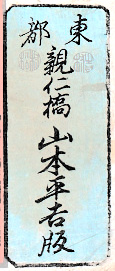 東都
親仁橋
山本平吉版